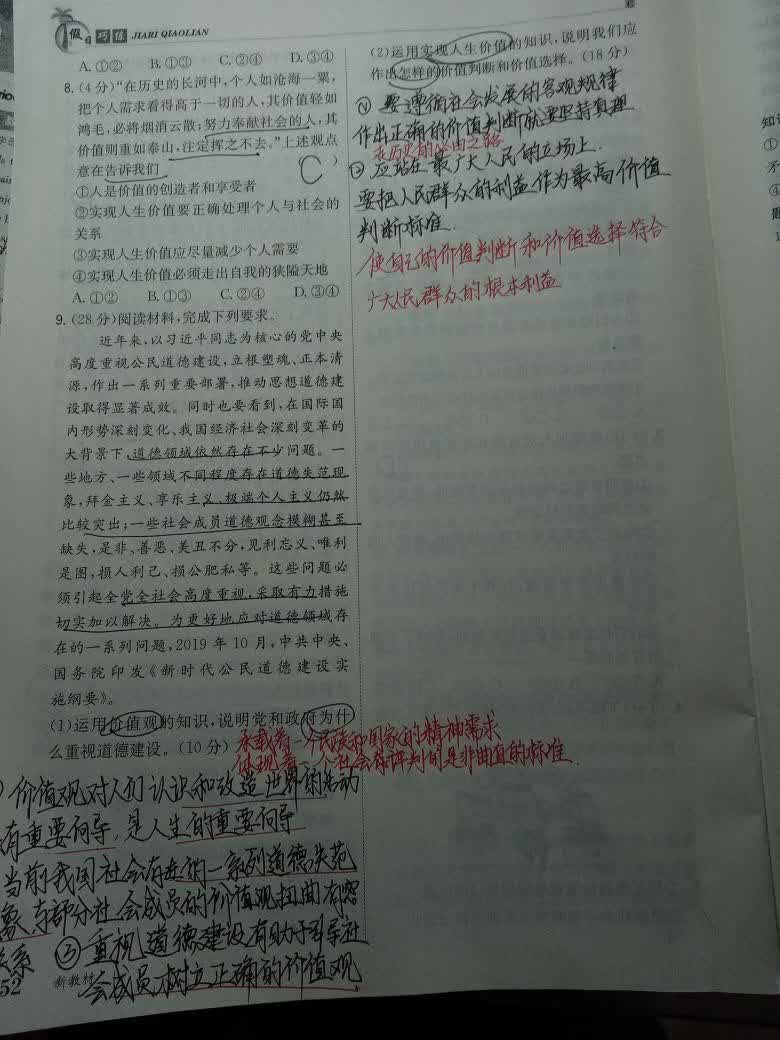 假日巧练 JIARI QIAOLIAN
A.①② B.①③ C.②④ D.③④
8.(4分)“在历史的长河中,个人如沧海一粟,
把个人需求看得高于一切的人,其价值轻如
鸿毛,必将烟消云散;努力奉献社会的人,其
价值则重如泰山,注定挥之不去。”上述观点
意在告诉我们 C )
①人是价值的创造者和享受者
②实现人生价值要正确处理个人与社会的
关系
③实现人生价值应尽量减少个人需要
④实现人生价值必须走出自我的狭隘天地
A.①② B.①③ C.②④ D.③④
9.(28分)阅读材料,完成下列要求。
近年来,以习近平同志为核心的党中央
高度重视公民道德建设,立根塑魂、正本清
源,作出一系列重要部署,推动思想道德建
设取得显著成效。同时也要看到,在国际国
内形势深刻变化、我国经济社会深刻变革的
大背景下,道德领域依然存在不少问题。一
些地方、一些领域不同程度存在道德失范现
象,拜金主义、享乐主义、极端个人主义仍然
比较突出;一些社会成员道德观念模糊甚至
缺失,是非、善恶、美丑不分,见利忘义、唯利
是图,损人利己、损公肥私等。这些问题必
须引起全党全社会高度重视,采取有力措施
切实加以解决。为更好地应对道德领域存
在的一系列问题,2019年10月,中共中央、
国务院印发《新时代公民道德建设实
施纲要》。
(1)运用价值观的知识,说明党和政府为什
么重视道德建设。(10分)
承载着一个民族和国家的精神需求
体现着一个社会有评判的是非曲直的标准.
价值观对人们认识和改造世界的活动
有重要向导,是人生的重要向导
当前我国社会存在的一系列道德失范
象,与部分社会成员的价值观扭曲有密
关系 ③重视道德建设有助于引导社
会成员树立正确的价值观
52 新教材
(2)运用实现人生价值的知识,说明我们应
作出怎样的价值判断和价值选择。(18分)
①要遵循社会发展的客观规律
作出正确的价值判断就要坚持真理
在历史的必由之路
②应站在最广大人民的立场上.
要把人民群众的利益作为最高价值
判断标准.
使自己的价值判断和价值选择符合
广大人民群众的根本利益